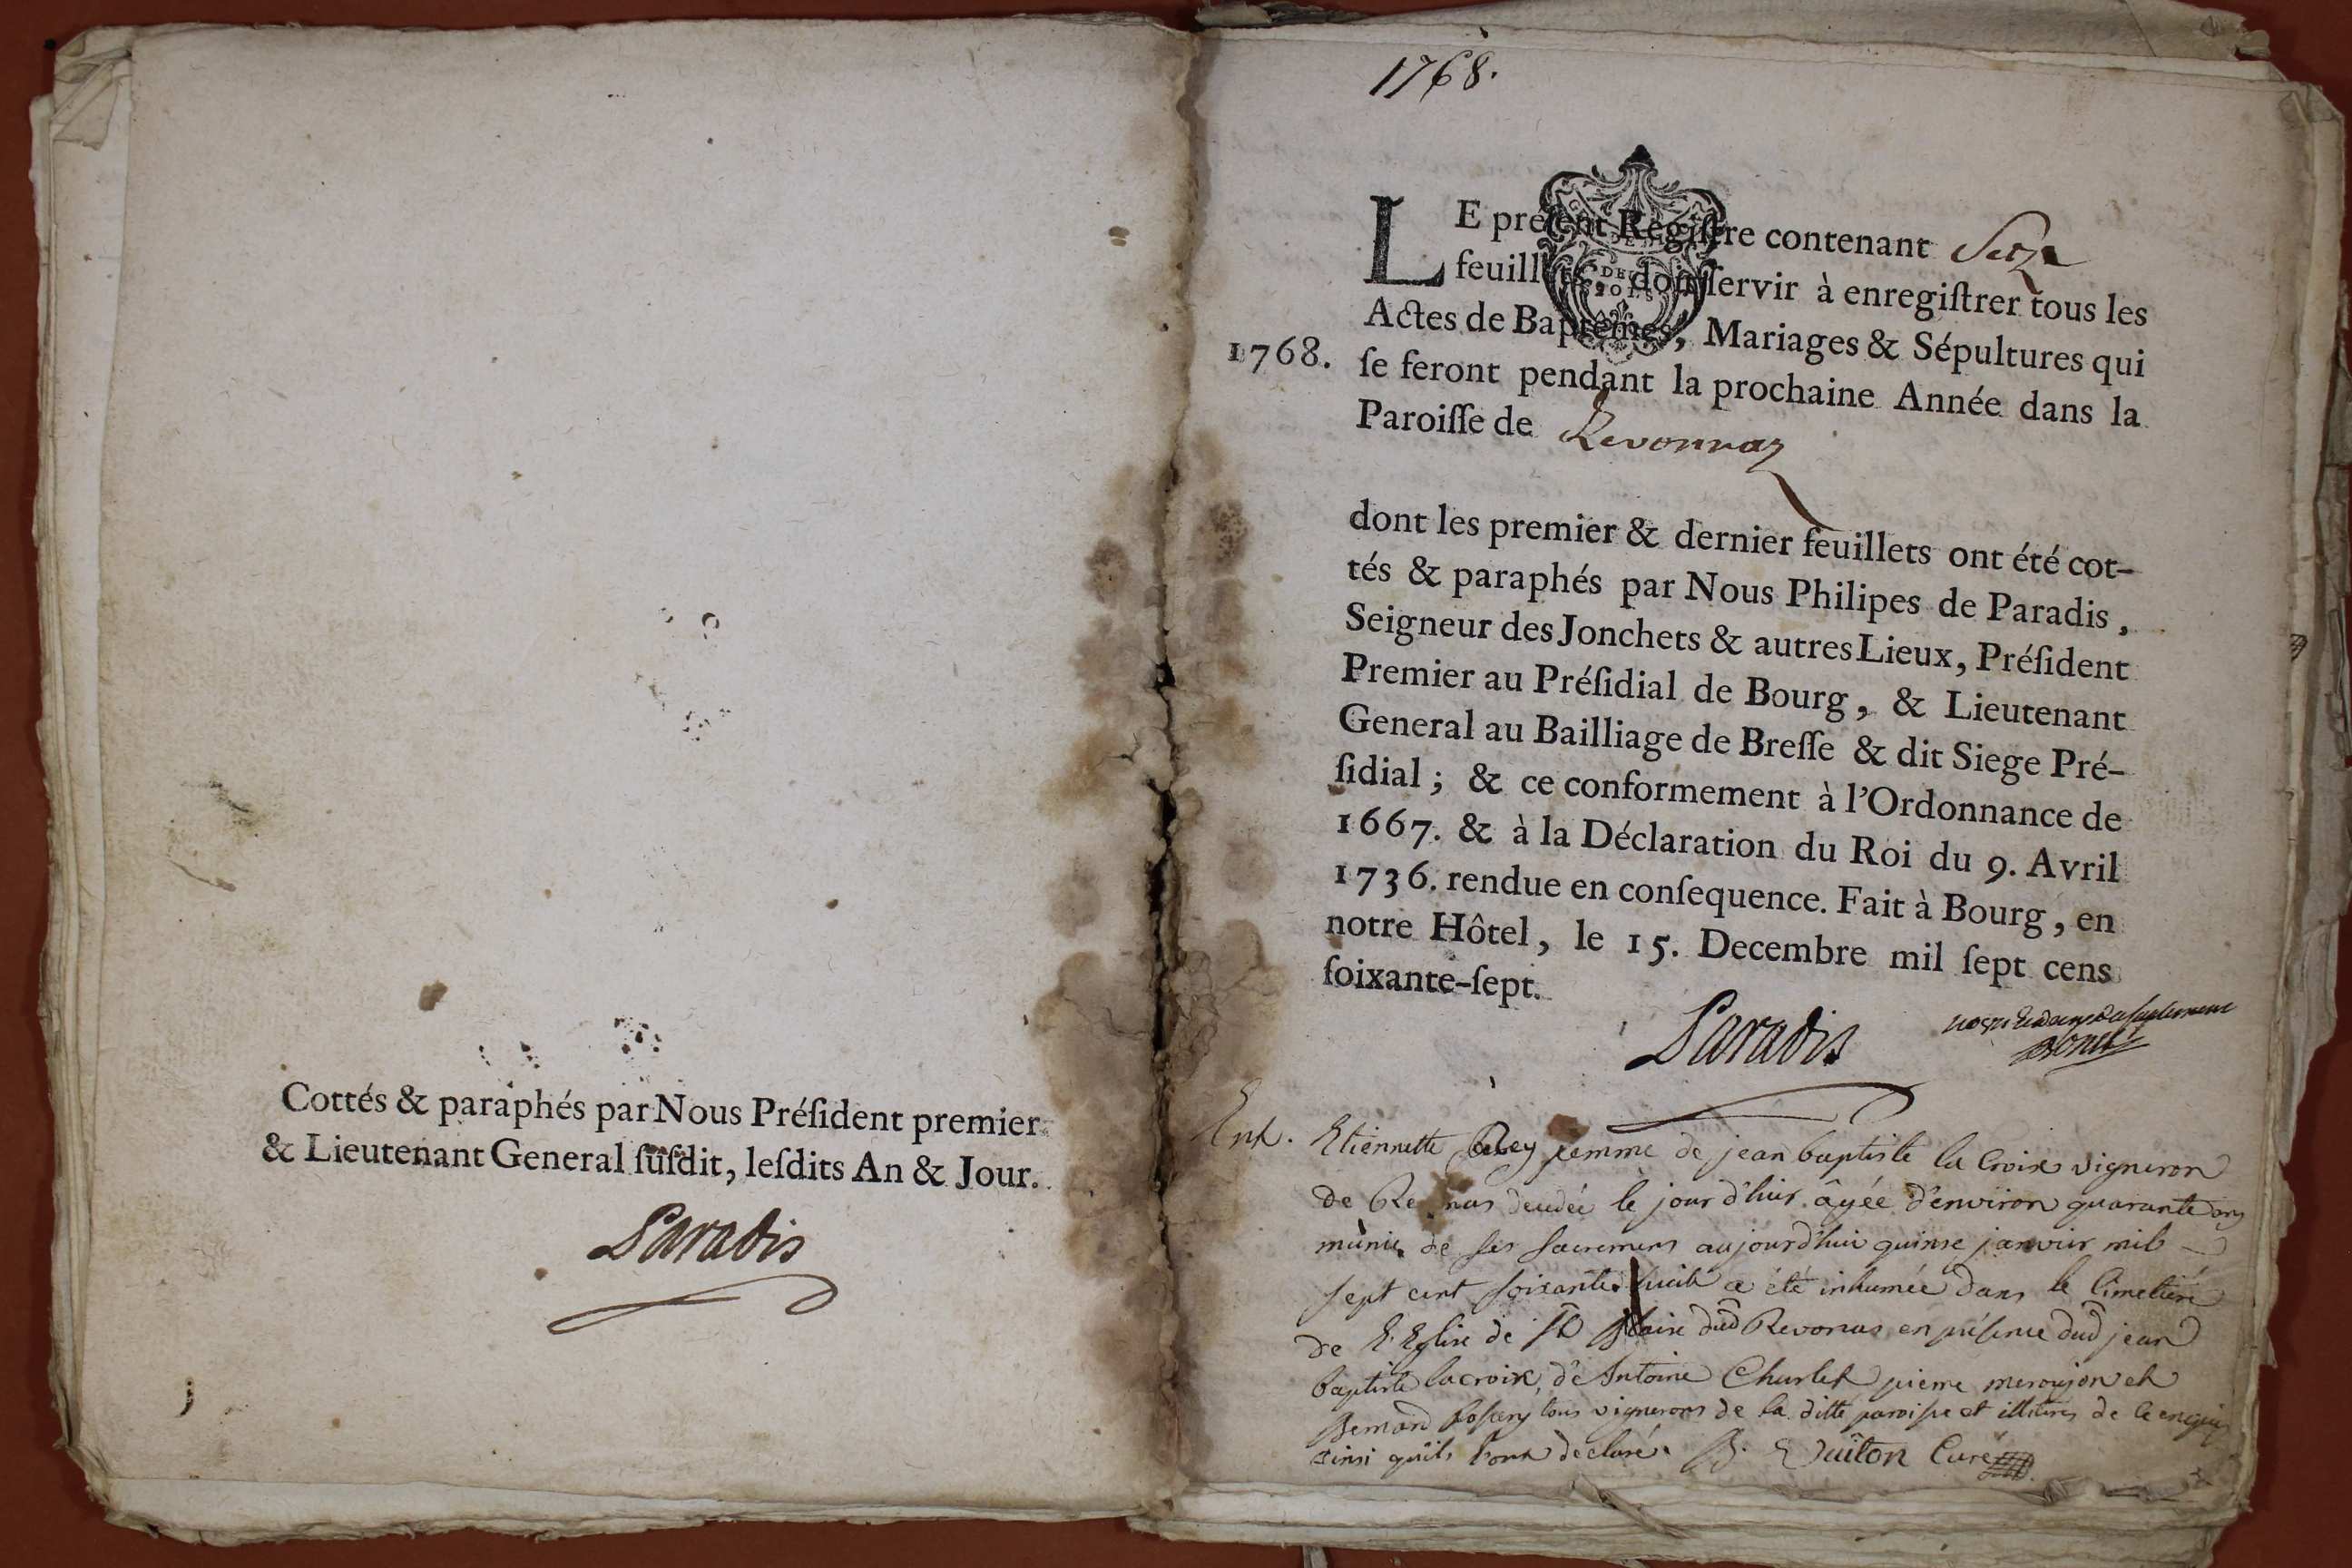 Cottés & paraphés par Nous Préſident premier
& Lieutenant General ſuſdit, leſdits An & Jour.
Paradis
1768.
LE préſent Regiſtre contenant Seize
feuillets, doit ſervir à enregiſtrer tous les
Actes de Baptêmes, Mariages & Sépultures qui
1768. ſe feront pendant la prochaine Année dans la
Paroiſſe de Revonnaz
dont les premier & dernier feuillets ont été cot-
tés & paraphés par Nous Philipes de Paradis,
Seigneur des Jonchets & autres Lieux, Préſident
Premier au Préſidial de Bourg, & Lieutenant
General au Bailliage de Breſſe & dit Siege Pré-
ſidial; & ce conformement à l'Ordonnance de
1667. & à la Déclaration du Roi du 9. Avril
1736. rendue en conſequence. Fait à Bourg, en
notre Hôtel, le 15. Decembre mil ſept cens
ſoixante-ſept.
Paradis
Ent. Etiennette Rey femme de jean baptiste la Croix vigneron
de Revonas decedée le jour d'hier âgée d'environ quarante ans
munie de ses sacremens aujourd'hui quinse janvier mil
sept cent soixante huit a été inhumée dans le Cimetiere
de l'Eglise de St Blaise dud Revonas en présence dud jean
baptiste lacroix, de Antoine Churlet pierre meroujon et
Bernard tous vignerons de la ditte paroisse et illitérés de ce enquis
ainsi qu'ils l'ont declaré. B. Vuiton Curé